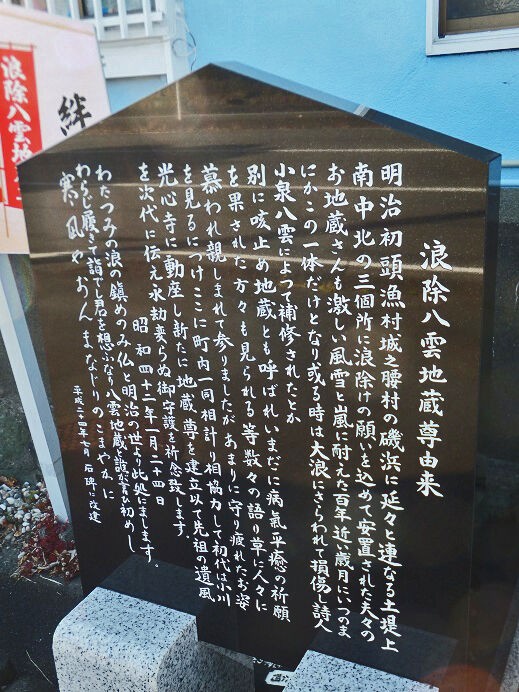 浪除八雲地蔵尊由来
明治初頭漁村城之腰村の磯浜に延々と連なる土堤上
南中北の三個所に浪除けの願いを込めて安置された夫々の
お地蔵さんも激しい風雪と嵐に耐えた百年近い歳月にいつのま
にかこの一体だけとなり或る時は大浪にさらわれて損傷し詩人
小泉八雲によって補修されたとか
別に咳止め地蔵とも呼ばれいまだに病氣平癒の祈願
を果された方々も見られる等数々の語り草に人々に
慕われ親しまれて参りましたがあまりに守り疲れたお姿
を見るにつけここに町内一同相計り相協力して初代は小川
光心寺に動座し新たに地蔵尊を建立以て先祖の遺風
を次代に伝え永劫変らぬ御守護を祈念致します。
昭和四十二年一月二十四日
わたつみの浪の鎮めのみ仏と明治の世より此処にまします。
わらじ履きて詣でし君を想ふなり八雲地蔵と誰が言ひ初めし
寒風やおんまなじりのこまやかに
平成二十四年七月 石碑に改建
浪除八雲地
絆